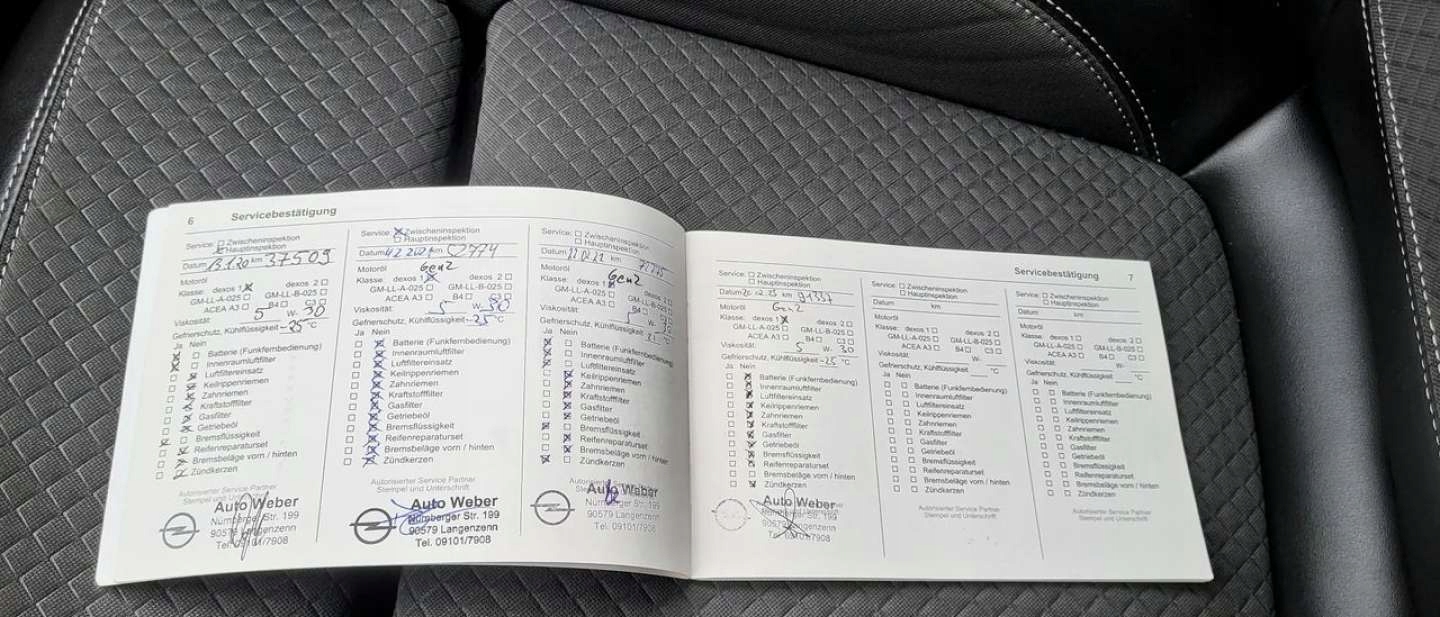 6 Servicebestätigung
Service: Zwischeninspektion
Hauptinspektion
Datum 13.1.20 km 37509
Motoröl
Klasse: dexos 1 dexos 2
GM-LL-A-025 GM-LL-B-025
ACEA A3 B4 C3
Viskosität: 5 W- 30
Gefrierschutz, Kühlflüssigkeit -25 °C
Ja Nein
Batterie (Funkfernbedienung)
Innenraumluftfilter
Luftfiltereinsatz
Keilrippenriemen
Zahnriemen
Kraftstofffilter
Gasfilter
Getriebeöl
Bremsflüssigkeit
Reifenreparaturset
Bremsbeläge vorn / hinten
Zündkerzen
Autorisierter Service Partner
Stempel und Unterschrift
Auto Weber
Nürnberger Str. 199
90579 Langenzenn
Tel. 09101/7908
Service: Zwischeninspektion
Hauptinspektion
Datum km
Motoröl Gen2
Klasse: dexos 1 dexos 2
GM-LL-A-025 GM-LL-B-025
ACEA A3 B4 C3
Viskosität: 5 W- 30
Gefrierschutz, Kühlflüssigkeit -25 °C
Ja Nein
Batterie (Funkfernbedienung)
Innenraumluftfilter
Luftfiltereinsatz
Keilrippenriemen
Zahnriemen
Kraftstofffilter
Gasfilter
Getriebeöl
Bremsflüssigkeit
Reifenreparaturset
Bremsbeläge vorn / hinten
Zündkerzen
Autorisierter Service Partner
Stempel und Unterschrift
Auto Weber
Nürnberger Str. 199
90579 Langenzenn
Tel. 09101/7908
Service: Zwischeninspektion
Hauptinspektion
Datum km
Motoröl Gen2
Klasse: dexos 1 dexos 2
GM-LL-A-025 GM-LL-B-025
ACEA A3 B4 C3
Viskosität: 5 W- 30
Gefrierschutz, Kühlflüssigkeit °C
Ja Nein
Batterie (Funkfernbedienung)
Innenraumluftfilter
Luftfiltereinsatz
Keilrippenriemen
Zahnriemen
Kraftstofffilter
Gasfilter
Getriebeöl
Bremsflüssigkeit
Reifenreparaturset
Bremsbeläge vorn / hinten
Zündkerzen
Auto Weber
Nürnberger Str. 199
90579 Langenzenn
Tel. 09101/7908
Servicebestätigung 7
Service: Zwischeninspektion
Hauptinspektion
Datum km 91337
Motoröl Gen2
Klasse: dexos 1 dexos 2
GM-LL-A-025 GM-LL-B-025
ACEA A3 B4 C3
Viskosität: 5 W- 30
Gefrierschutz, Kühlflüssigkeit -25 °C
Ja Nein
Batterie (Funkfernbedienung)
Innenraumluftfilter
Luftfiltereinsatz
Keilrippenriemen
Zahnriemen
Kraftstofffilter
Gasfilter
Getriebeöl
Bremsflüssigkeit
Reifenreparaturset
Bremsbeläge vorn / hinten
Zündkerzen
Auto Weber
Nürnberger Str. 199
90579 Langenzenn
Tel. 09101/7908
Service: Zwischeninspektion
Hauptinspektion
Datum km
Motoröl
Klasse: dexos 1 dexos 2
GM-LL-A-025 GM-LL-B-025
ACEA A3 B4 C3
Viskosität: W-
Gefrierschutz, Kühlflüssigkeit °C
Ja Nein
Batterie (Funkfernbedienung)
Innenraumluftfilter
Luftfiltereinsatz
Keilrippenriemen
Zahnriemen
Kraftstofffilter
Gasfilter
Getriebeöl
Bremsflüssigkeit
Reifenreparaturset
Bremsbeläge vorn / hinten
Zündkerzen
Autorisierter Service Partner
Stempel und Unterschrift
Service: Zwischeninspektion
Hauptinspektion
Datum km
Motoröl
Klasse: dexos 1 dexos 2
GM-LL-A-025 GM-LL-B-025
ACEA A3 B4 C3
Viskosität: W-
Gefrierschutz, Kühlflüssigkeit °C
Ja Nein
Batterie (Funkfernbedienung)
Innenraumluftfilter
Luftfiltereinsatz
Keilrippenriemen
Zahnriemen
Kraftstofffilter
Gasfilter
Getriebeöl
Bremsflüssigkeit
Reifenreparaturset
Bremsbeläge vorn / hinten
Zündkerzen
Autorisierter Service Partner
Stempel und Unterschrift